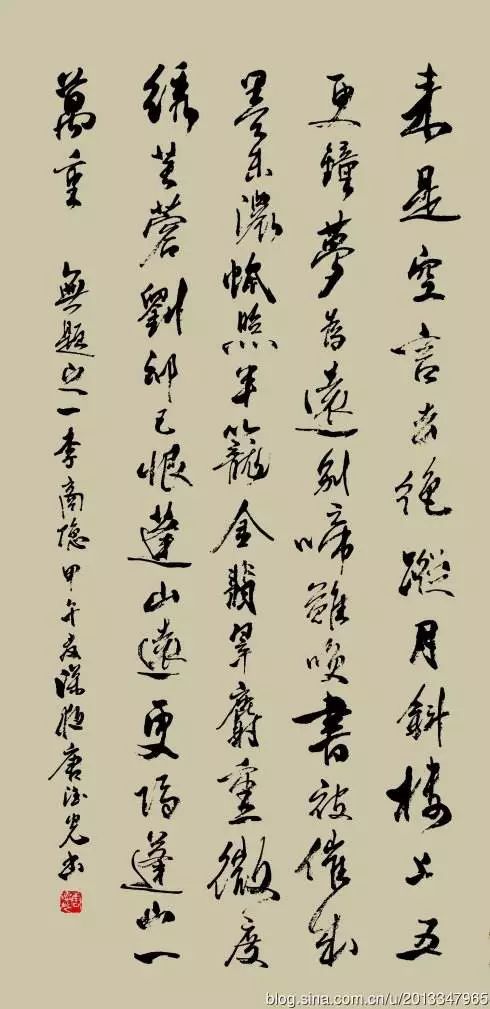 來是空言去絕蹤月斜樓上五
更鐘夢為遠別啼難喚書被催成
墨未濃蠟照半籠金翡翠麝熏微度
繡芙蓉劉郎已恨蓬山遠更隔蓬山一
萬重 無題之一李商隱甲午唐書
blog.sina.com.cn/u/2013347965